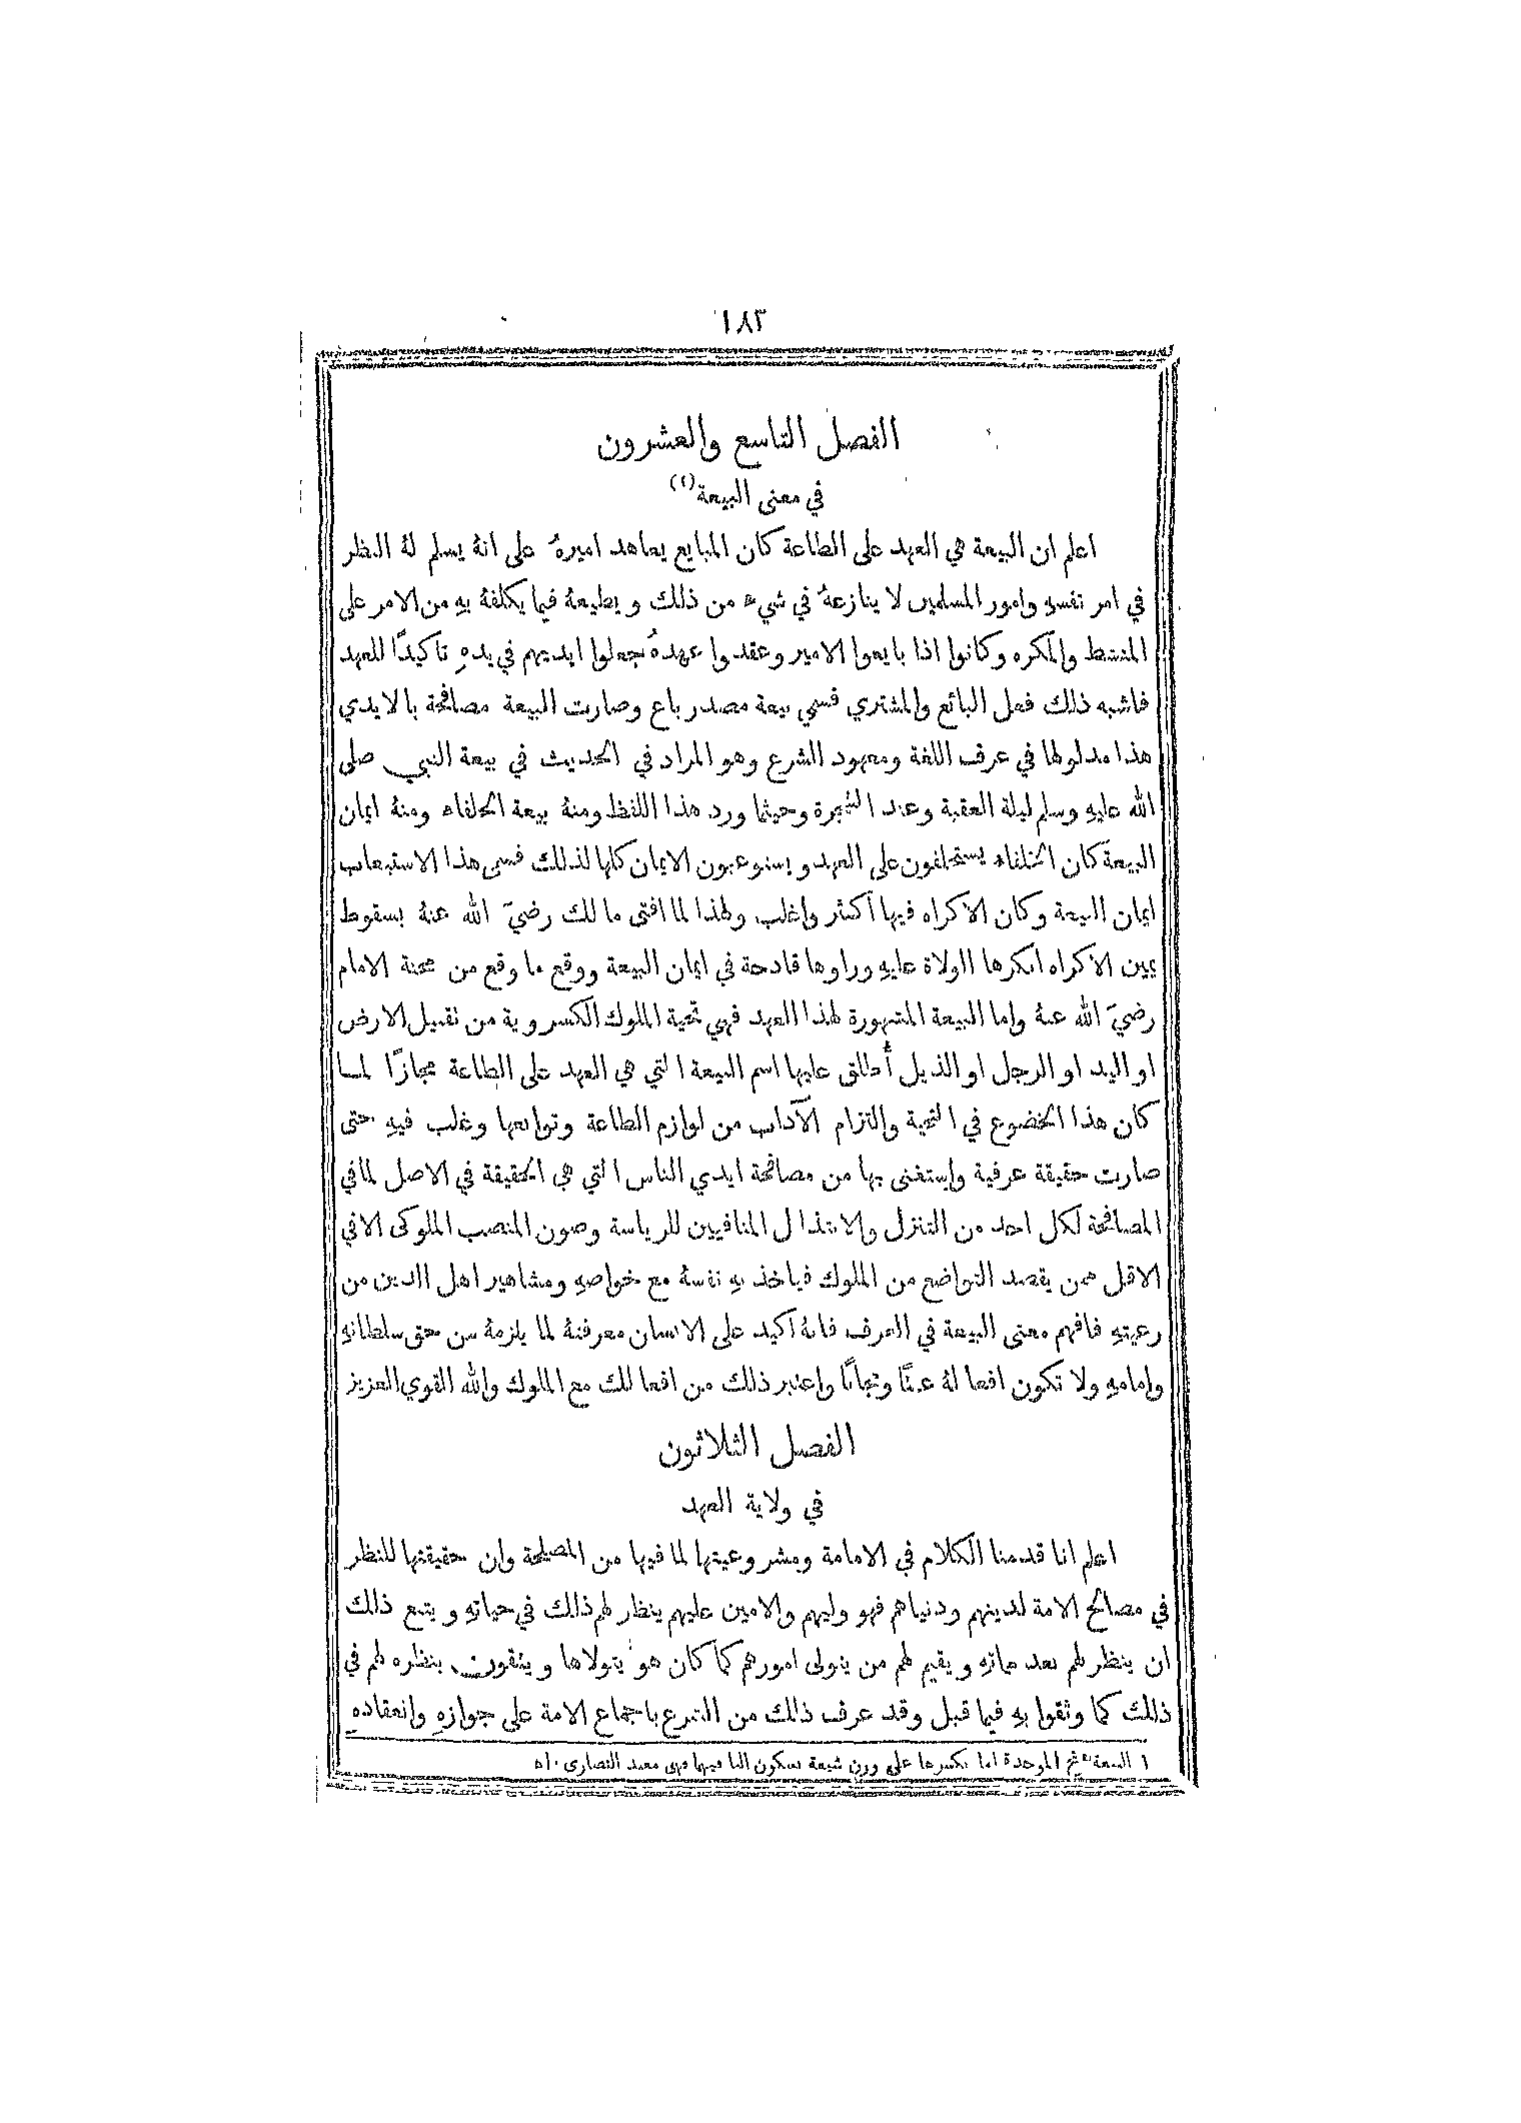 ١٨٣
الفصل التاسع والعشرون
في معنى البيعة (١)
اعلم ان البيعة هي العهد على الطاعة كان المبايع يعاهد اميرهُ على انهُ يسلم لهُ النظر
في امر نفسهِ وامور المسلمين لا ينازعهُ في شيء من ذلك ويطيعهُ فيما يكلفهُ بهِ من الامر على
المنشط والمكره وكانوا اذا بايعوا الامير وعقدوا عهدهُ جعلوا ايديهم في يدهِ تاكيدًا للعهد
فاشبه ذلك فعل البائع والمشتري فسمي بيعة مصدر باع وصارت البيعة مصافحة بالايدي
هذا مدلولها في عرف اللغة ومعهود الشرع وهو المراد في الحديث في بيعة النبي صلى
الله عليهِ وسلم ليلة العقبة وعند الشجرة وحيثما ورد هذا اللفظ ومنهُ بيعة الخلفاء ومنهُ ايمان
البيعة كان الخلفاء يستحلفون على العهد ويستوعبون الايمان كلها لذلك فسمي هذا الاستيعاب
ايمان البيعة وكان الاكراه فيها أكثر واغلب ولهذا لما افتى مالك رضيَ الله عنهُ بسقوط
يمين الاكراه انكرها الولاة عليهِ وراوها قادحة في ايمان البيعة ووقع ما وقع من محنة الامام
رضيَ الله عنهُ واما البيعة المشهورة لهذا العهد فهي تحية الملوك الكسروية من تقبيل الارض
او اليد او الرجل او الذيل أُطلق عليها اسم البيعة التي هي العهد على الطاعة مجازًا لما
كان هذا الخضوع في التحية والتزام الآداب من لوازم الطاعة وتوابعها وغلب فيهِ حتى
صارت حقيقة عرفية واستغنى بها من مصافحة ايدي الناس التي هي الحقيقة في الاصل لما في
المصافحة لكل احد من التنزل والابتذال المنافيين للرياسة وصون المنصب الملوكي الا في
الاقل ممن يقصد التواضع من الملوك فياخذ بهِ نفسهُ مع خواصهِ ومشاهير اهل الدين من
رعيتهِ فافهم معنى البيعة في العرف فانهُ اكيد على الانسان معرفتهُ لما يلزمهُ من حق سلطانهِ
وامامهِ ولا تكون افعالهُ عبثًا ومجانًا واعتبر ذلك من افعالك مع الملوك والله القوي العزيز
الفصل الثلاثون
في ولاية العهد
اعلم انا قدمنا الكلام في الامامة ومشروعيتها لما فيها من المصلحة وان حقيقتها للنظر
في مصالح الامة لدينهم ودنياهم فهو وليهم والامين عليهم ينظر لهم ذلك في حياتهِ ويتبع ذلك
ان ينظر لهم بعد مماتهِ ويقيم لهم من يتولى امورهم كما كان هو يتولاها ويثقون بنظره لهم في
ذلك كما وثقوا بهِ فيما قبل وقد عرف ذلك من الشرع باجماع الامة على جوازهِ وانعقادهِ
١ البيعة بفتح الموحدة اما بكسرها على وزن شيعة بسكون اليا فيها فهي معبد النصارى ١٠ه